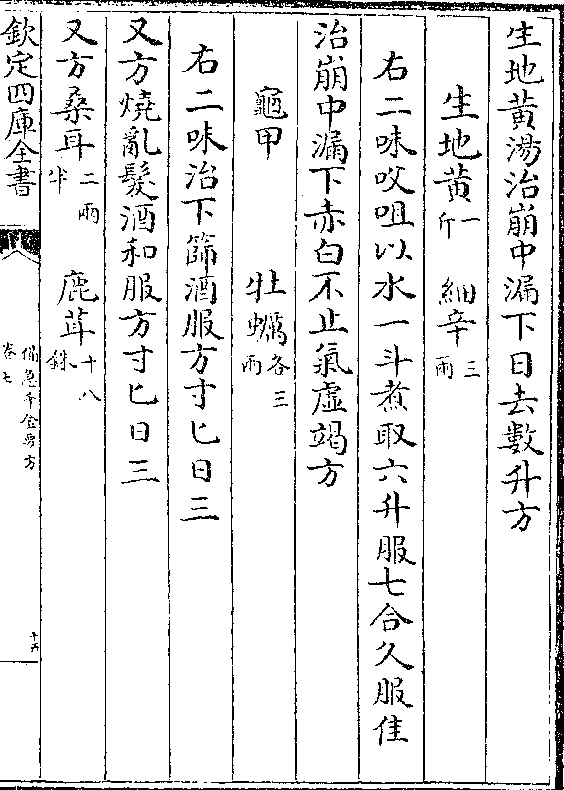 生地黃湯治崩中漏下日去數升方
生地黃一斤 細辛三兩
右二味㕮咀以水一斗煮取六升服七合久服佳
治崩中漏下赤白不止氣虛竭方
龜甲 牡蠣各三兩
右二味治下篩酒服方寸匕日三
又方燒亂髮酒和服方寸匕日三
又方桑耳二兩半 鹿茸十八銖
欽定四庫全書
備急千金要方
卷七
十五